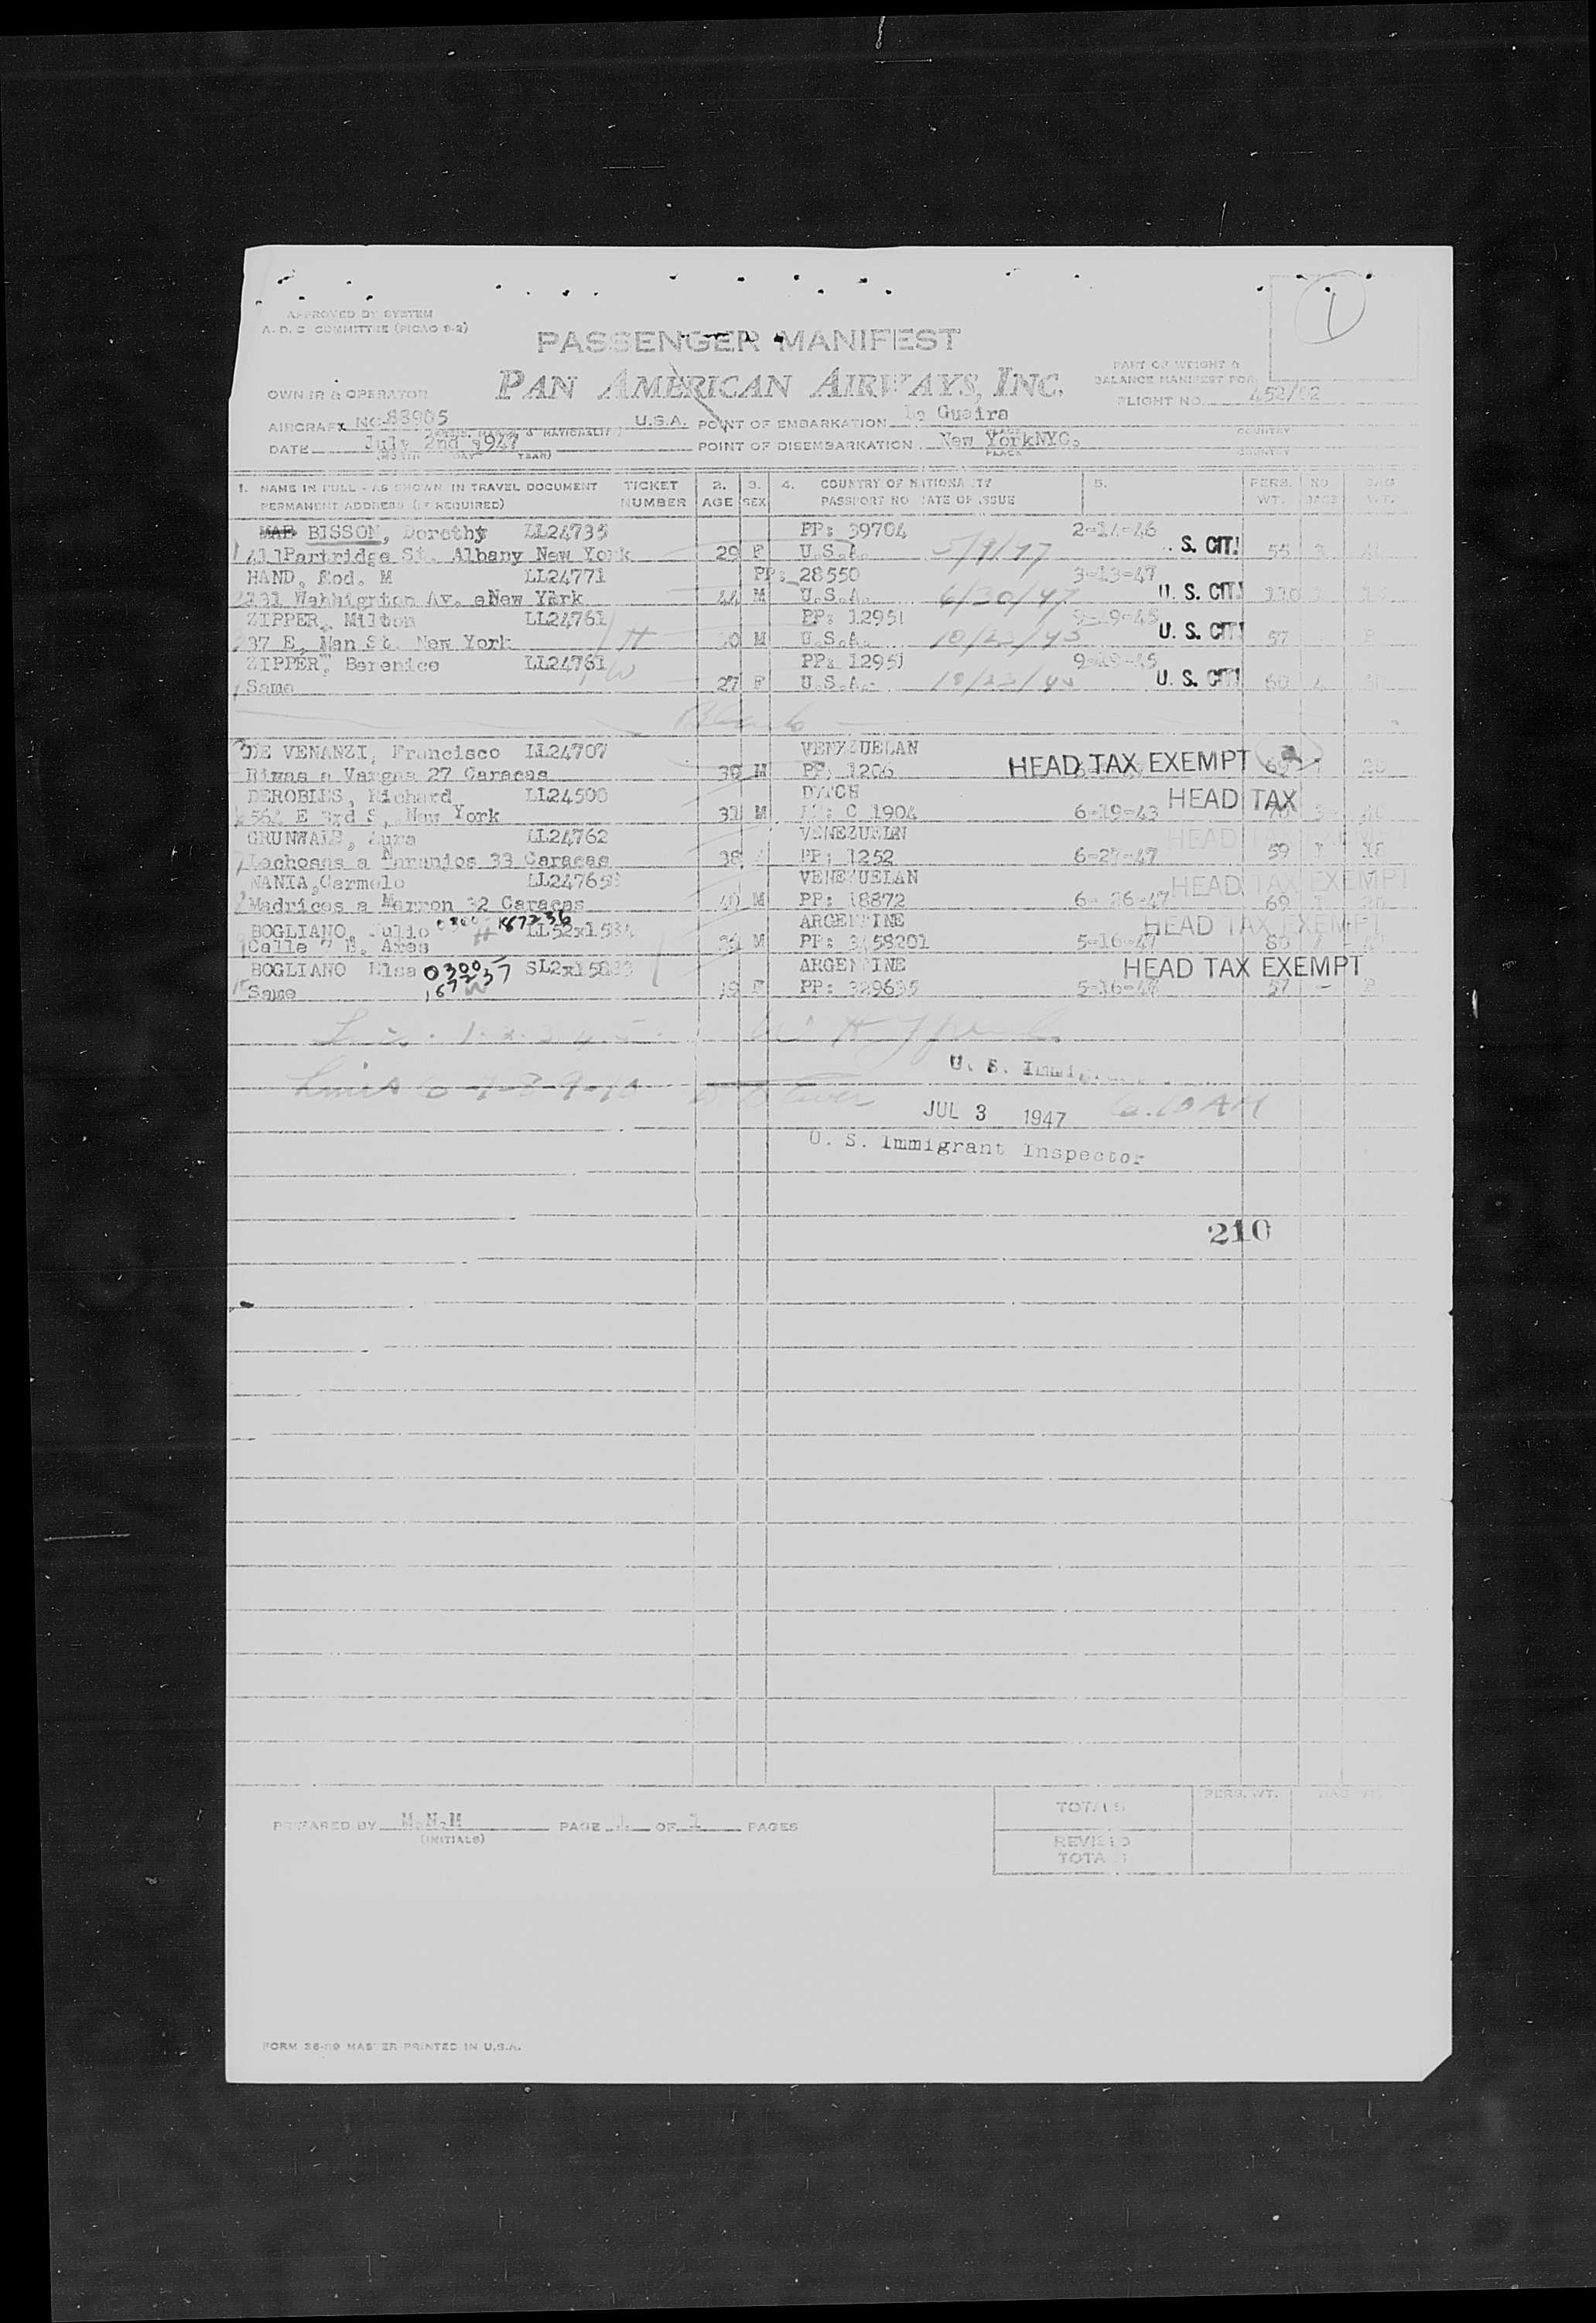 APPROVED BY SYSTEM
A. D. C. COMMITTEE (PICAO 8-2)
PASSENGER MANIFEST
PAN AMERICAN AIRWAYS, INC.
PART OF WEIGHT &
BALANCE MANIFEST FOR
FLIGHT NO. 452/02
OWNER & OPERATOR
AIRCRAFT NC-88905 U.S.A. POINT OF EMBARKATION La Guaira
DATE July 2nd 1947 POINT OF DISEMBARKATION New YorkNYC.
(MONTH DAY YEAR) PLACE COUNTRY
1. NAME IN FULL - AS SHOWN IN TRAVEL DOCUMENT TICKET 2. 3. 4. COUNTRY OF NATIONALITY 5. PERS. NO BAG
PERMANENT ADDRESS (IF REQUIRED) NUMBER AGE SEX PASSPORT NO DATE OF ISSUE WT. BAGS WT.
BISSON, Dorothy LL24735 PP: 39704 2-14-46
411Partridge St. Albany New York 29 F U.S.A. S. CIT. 55
HAND, Rod. M LL24771 PP: 28550 3-13-47
Av. New York 44 M U.S.A. 6/30/47 U. S. CIT. 110
ZIPPER, Milton LL24761 PP: 12951 9-19-45
37 E, Man St. New York H 30 M U.S.A. 10/23/45 U. S. CIT. 57
ZIPPER, Berenice LL24761 PP: 12951 9-19-45
Same W 27 F U.S.A. 10/23/45 U. S. CIT. 60
Blank
DE VENANZI, Francisco LL24707 VENEZUELAN
Rivas a Vargas 27 Caracas 30 M PP: 1206 HEAD TAX EXEMPT
DEROBLES, Richard LL24500 DUTCH HEAD TAX
564 E 3rd S, New York 31 M C 1904 6-19-43 70
GRUNWALD, Aura LL24762 VENEZUELAN HEAD TAX
Lachosas a Naranjos 33 Caracas 38 PP: 1252 6-27-47 59 1 18
NANIA,Carmelo VENEZUELAN HEAD TAX EXEMPT
Madrices a Marron 32 Caracas 40 M PP: 18872 6-26-47 69 1 20
BOGLIANO, Julio ARGENTINE HEAD TAX EXEMPT
Calle 7 B. Ares M PP: 3458201 5-16-47 80
BOGLIANO Elsa ARGENTINE HEAD TAX EXEMPT
Same W 19 F PP: 329635 5-16-47 57 - P
Lines 1-2-3-4-5
U. S. Immi
Lines 6-7-8-9-10
JUL 3 1947 6.10 AM
U. S. Immigrant Inspector
210
PREPARED BY M.N.M PAGE 1 OF 1 PAGES
(INITIALS)
TOTALS PERS. WT. BAG WT.
REVISED
TOTALS
FORM 36-09 MASTER PRINTED IN U.S.A.